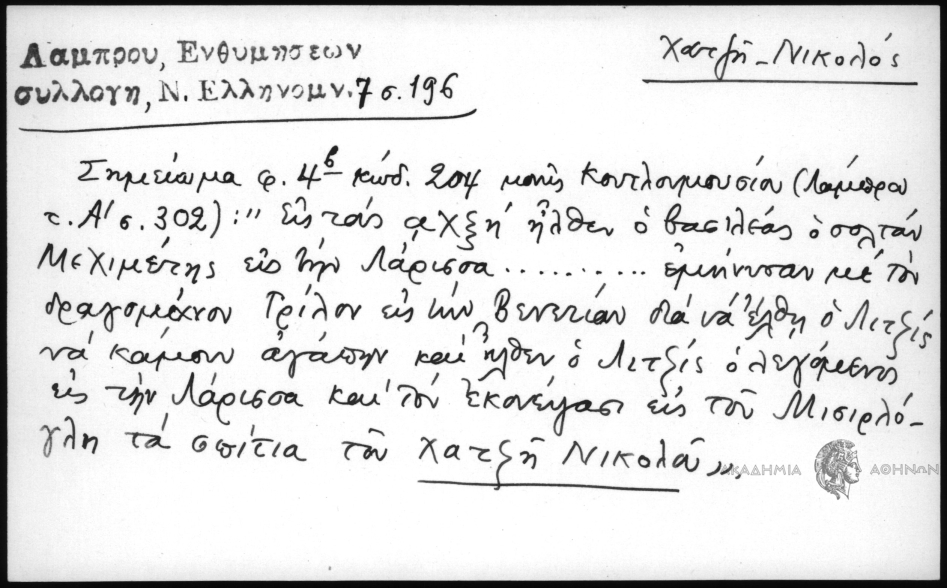 Λαμπρου, Ενθυμησεων
συλλογη, Ν. Ελληνομν. 7 σ. 196
Χατζῆ-Νικολός
Σημείωμα φ. 4β κώδ. 204 μονῆς Κουτλουμουσίου (Λάμπρου
τ. Α' σ. 302): " Εἰς τούς αχξη' ἦλθεν ὁ βασιλεάς ὁ σολτάν
Μεχιμέτης εἰς τήν Λάρισσα .......... ἐμήνυσαν μέ τόν
δραγομάνον Γρίλον εἰς τήν Βενετίαν διά νά ἔλθῃ ὁ Λιτζίς
νά κάμουν ἀγάπην καί ἦλθεν ὁ Λιτζίς ὁ λεγόμενος
εἰς τήν Λάρισσα καί τόν ἐκονέψασι εἰς τοῦ Μισιρλό-
γλη τά σπίτια τοῦ Χατζῆ Νικολοῦ",
ΑΚΑΔΗΜΙΑ ΑΘΗΝΩΝ